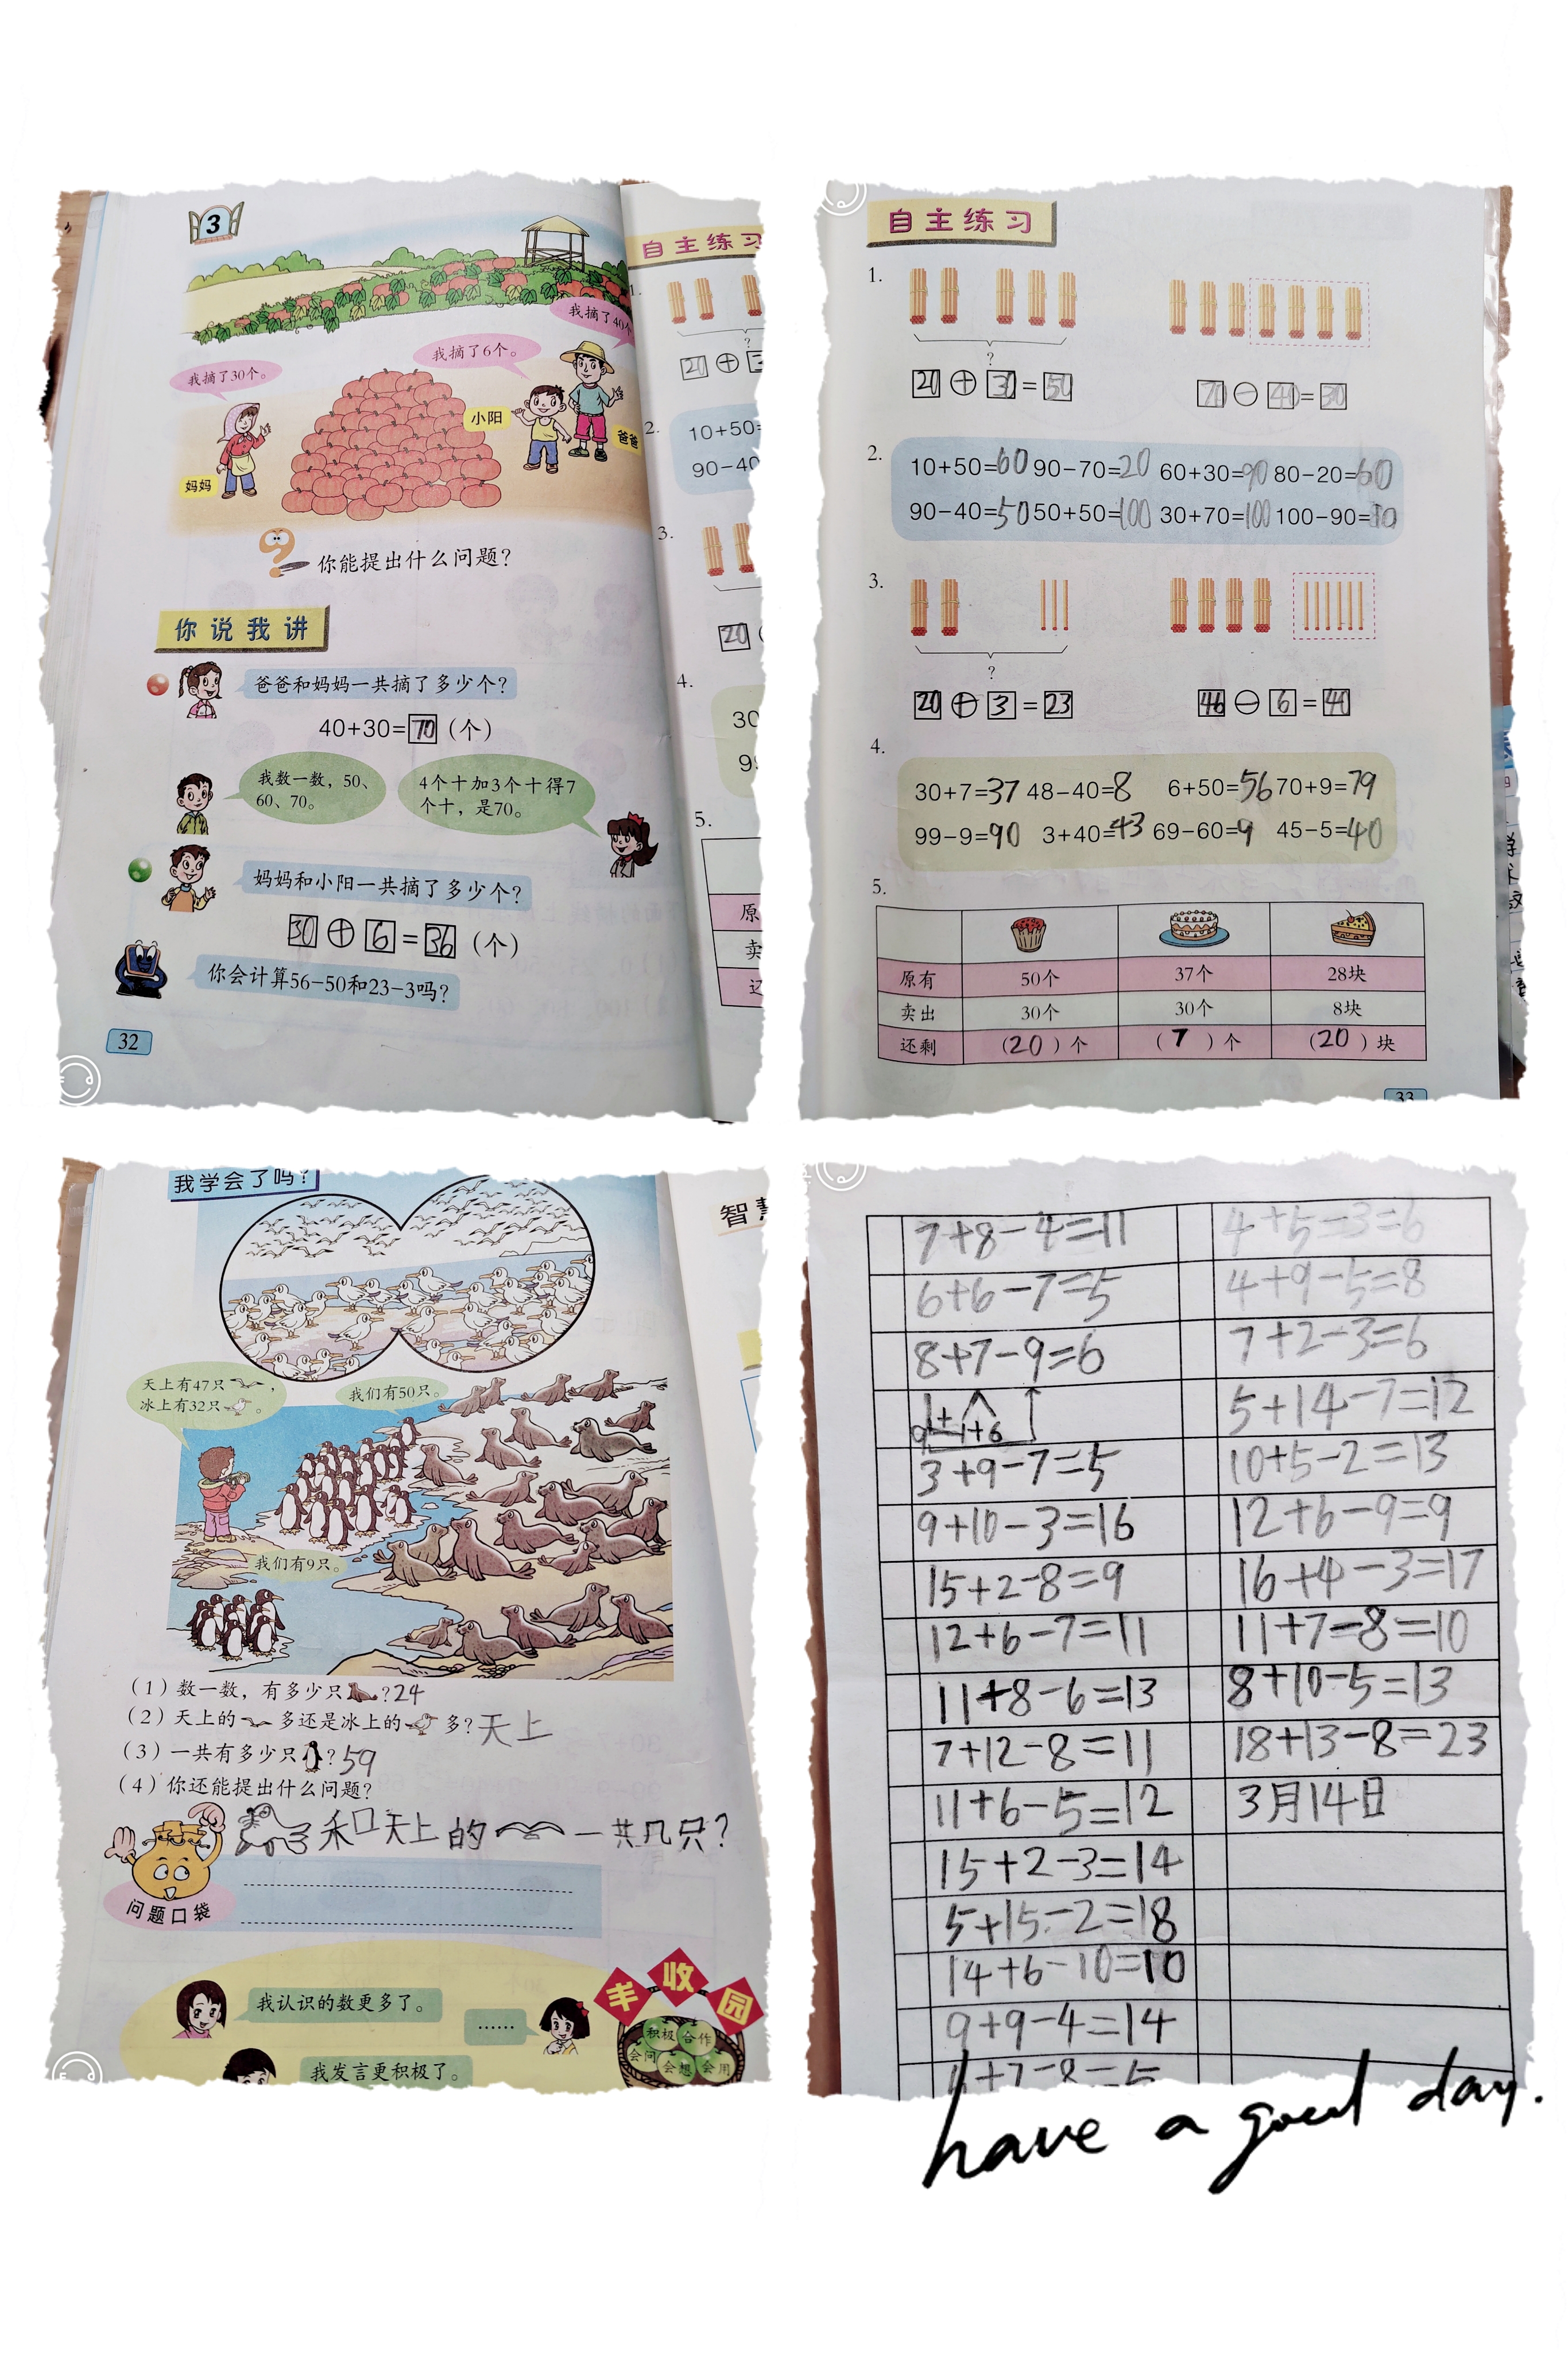 3
我摘了40个
我摘了6个。
我摘了30个。
小阳
爸爸
妈妈
你能提出什么问题?
你说我讲
爸爸和妈妈一共摘了多少个?
40+30=70(个)
我数一数,50、
60、70。
4个十加3个十得7
个十,是70。
妈妈和小阳一共摘了多少个?
30+6=36(个)
你会计算56-50和23-3吗?
32
自主练习
1.
?
20+3
2.
10+50=
90-40
3.
20
4.
30
99
5.
原
卖
自主练习
1.
?
20+30=50 70-40=30
2.
10+50=60 90-70=20 60+30=90 80-20=60
90-40=50 50+50=100 30+70=100 100-90=10
3.
?
20+3=23 46-6=40
4.
30+7=37 48-40=8 6+50=56 70+9=79
99-9=90 3+40=43 69-60=9 45-5=40
5.
原有 50个 37个 28块
卖出 30个 30个 8块
还剩 (20)个 (7)个 (20)块
33
我学会了吗?
智
天上有47只,
冰上有32只。
我们有50只。
我们有9只。
(1)数一数,有多少只?24
(2)天上的多还是冰上的多?天上
(3)一共有多少只?59
(4)你还能提出什么问题?
和天上的一共几只?
问题口袋
我认识的数更多了。
……
我发言更积极了。
丰收园
积极 合作
会问 会想 会用
7+8-4=11 4+5-3=6
6+6-7=5 4+9-5=8
8+7-9=6 7+2-3=6
5+14-7=12
3+9-7=5 10+5-2=13
9+10-3=16 12+6-9=9
15+2-8=9 16+4-3=17
12+6-7=11 11+7-8=10
11+8-6=13 8+10-5=13
7+12-8=11 18+13-8=23
11+6-5=12 3月14日
15+2-3=14
5+15-2=18
14+6-10=10
9+9-4=14
have a good day.